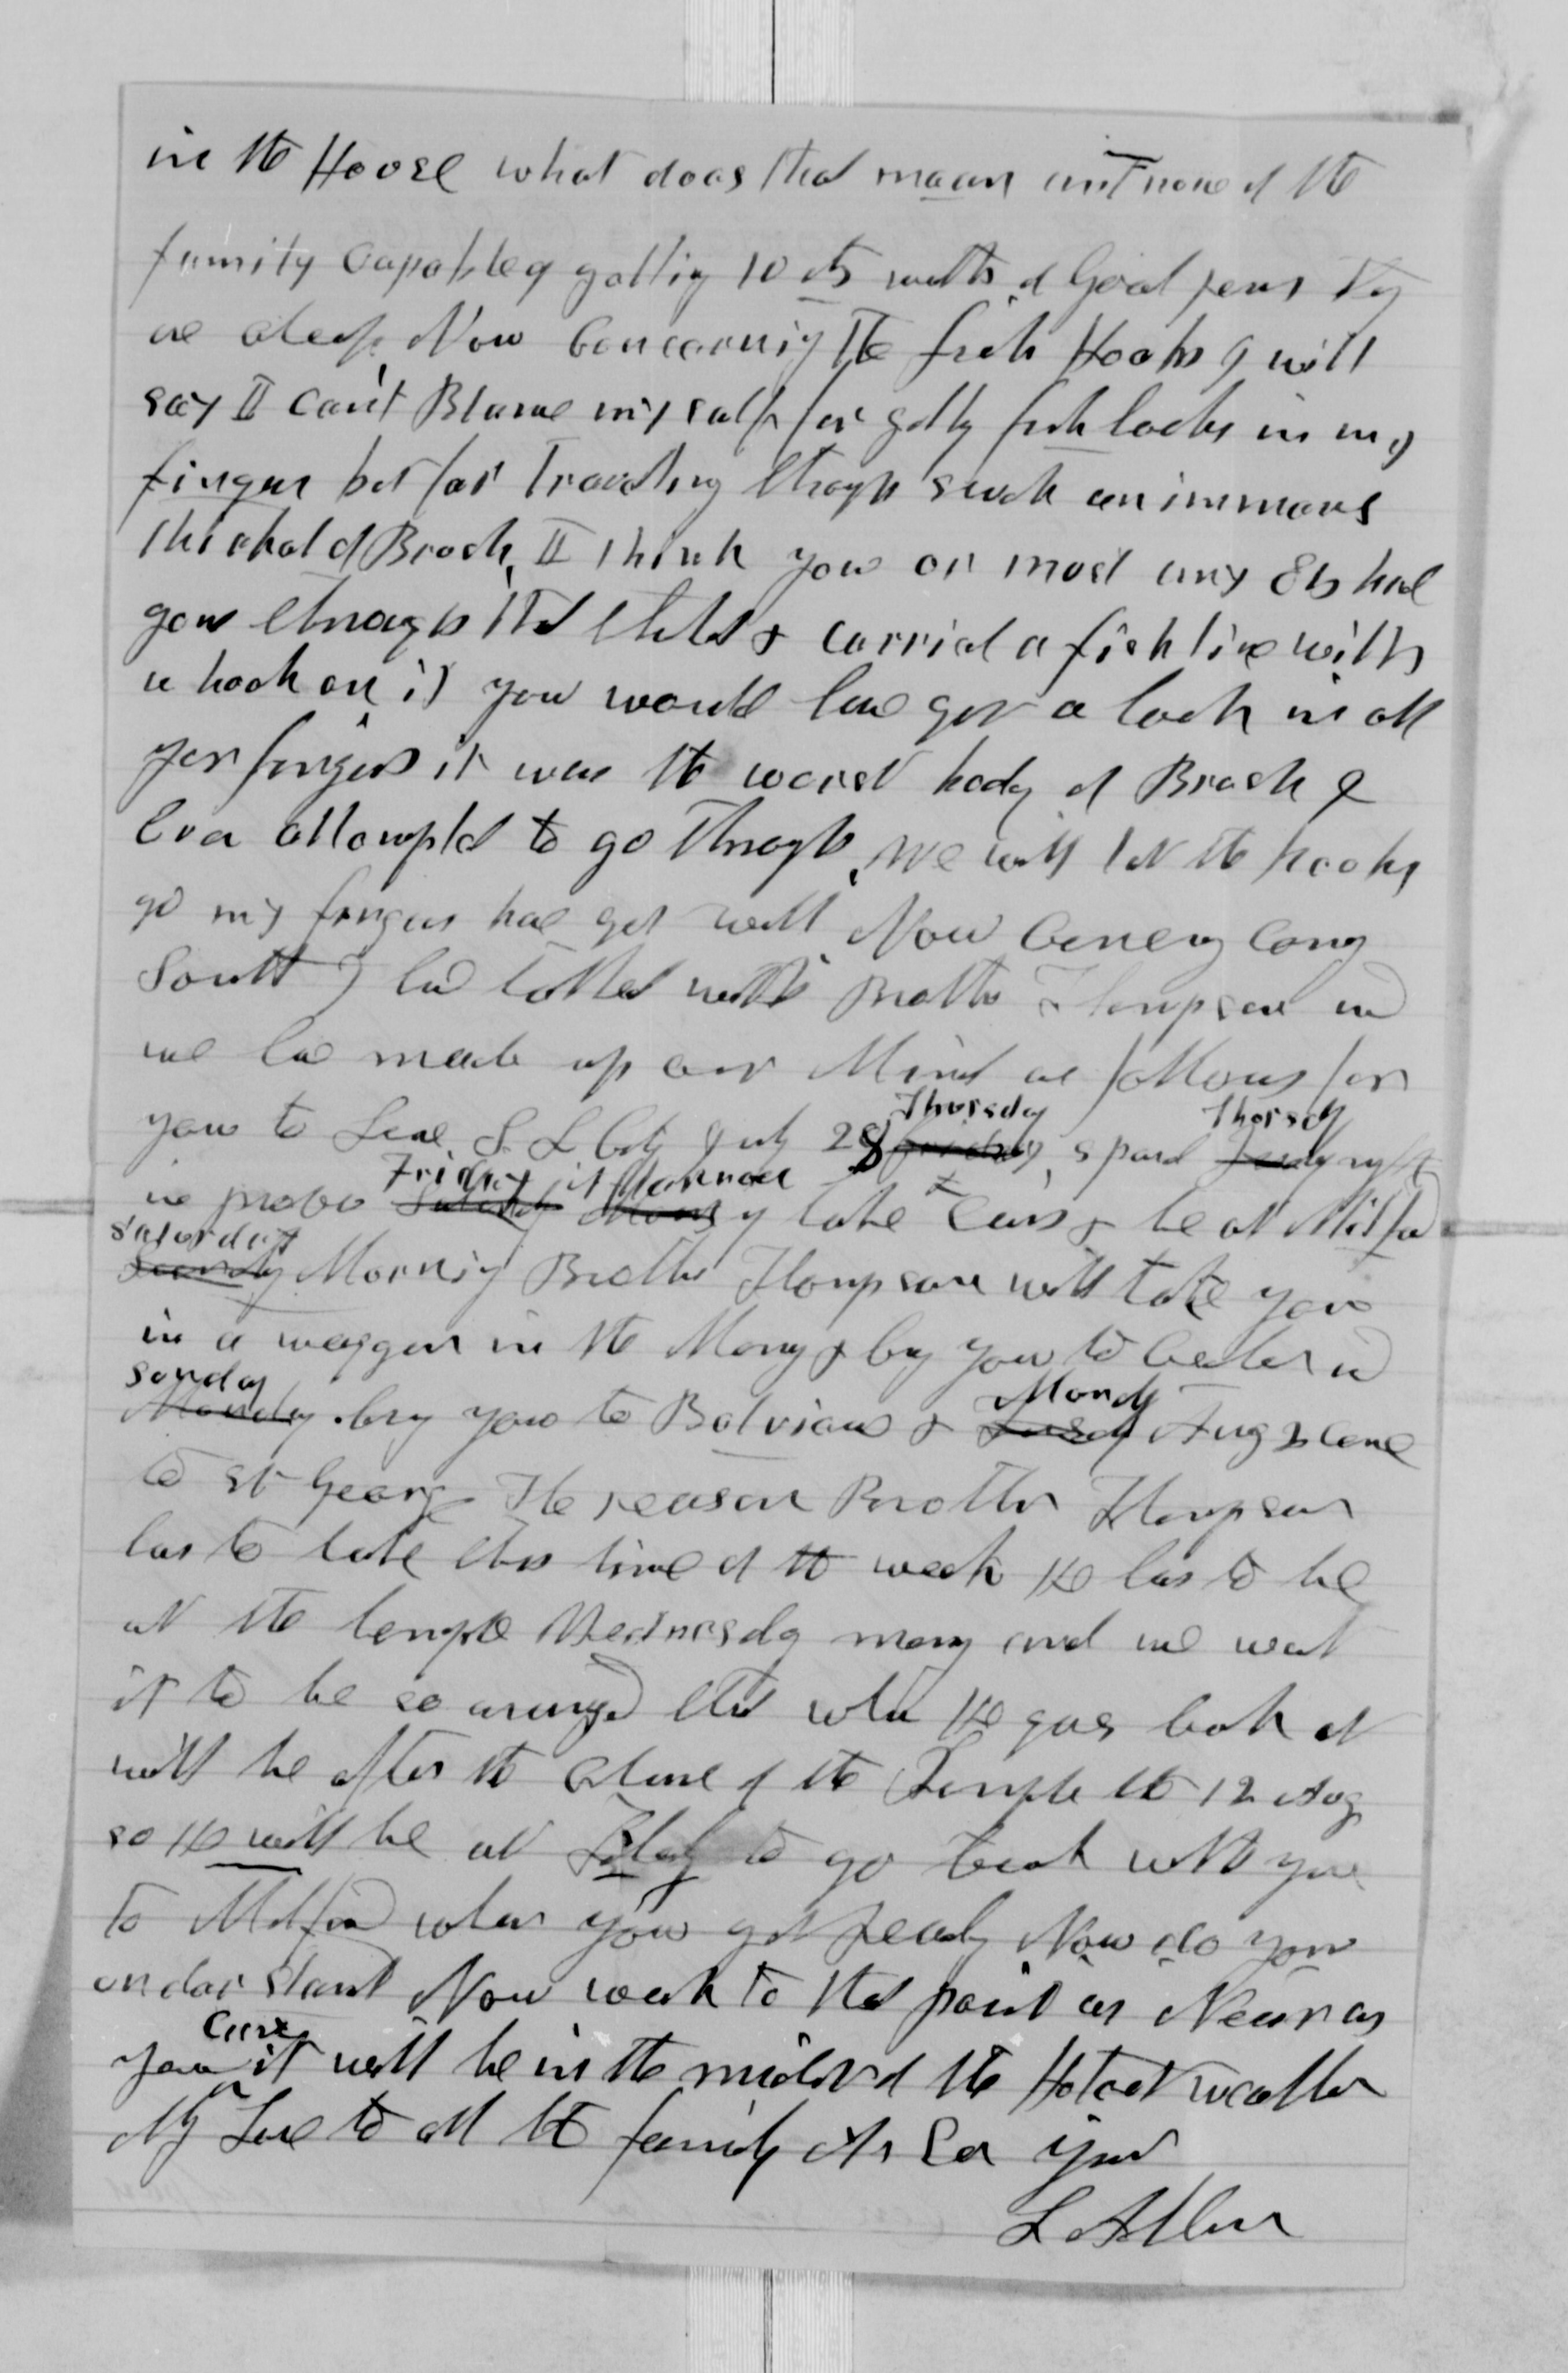 in the House what does that mean aint none of the
family Capable of getting 10 cts worth of Good pens they
are cheap Now Concerning the fish Hooks I will
say I can't Blame my self for getting fish hooks in my
fingers but for Traveling through such an immens
thicket of Brush, I think you or most any had
gone through that thicket & carried a fish line with
a hook on it you would have got a hook in all
yor fingers it was the worst body of Brush I
Ever attempted to go through, we will let the hooks
go my fingers have got well Now Concerning Coming
South I have talked with Brother Thompson and
we have made up our Mind as follows for
you to Leave S. L City July 28 Thursday, spend Thorsdy night
in provo Friday afternoon take Cars & be at Milford
Saturday Morning Brother Thompson will take you
in a waggon in the Morng & bring you to and
Sonday bring you to & Mondy Aug 1 come
to St George The reason Brother Thompson
has to take this time of the week He has to be
at the temple Wednesdy morng and we want
it to be so arangd that when He goes back it
will be after the Close of the Temple the 12 Aug
so He will be at Liberty to go back with you
to Milford when you get ready Now do you
ondorstand Now work to that point as Near as
you Can it will be in the midst of the Hotest weather
My Love to all the family As Ever your
L